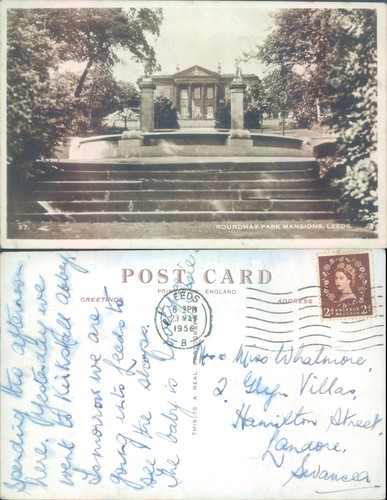 37.
ROUNDHAY PARK MANSIONS, LEEDS.
POST CARD
PRINTED IN ENGLAND
GREETINGS
ADDRESS
THIS IS A REAL PHOTOGRAPH
LEEDS
6 15 PM
23 MAY
1956
B
2D POSTAGE REVENUE 2D
Spending the afternoon
here. Yesterday we
went to Kirkstall Abbey
Tomorrow we are
going into Leeds to
see the shops.
The baby is
Miss Whatmore,
2 Glyn Villas,
Hamilton Street,
Landore,
Swansea